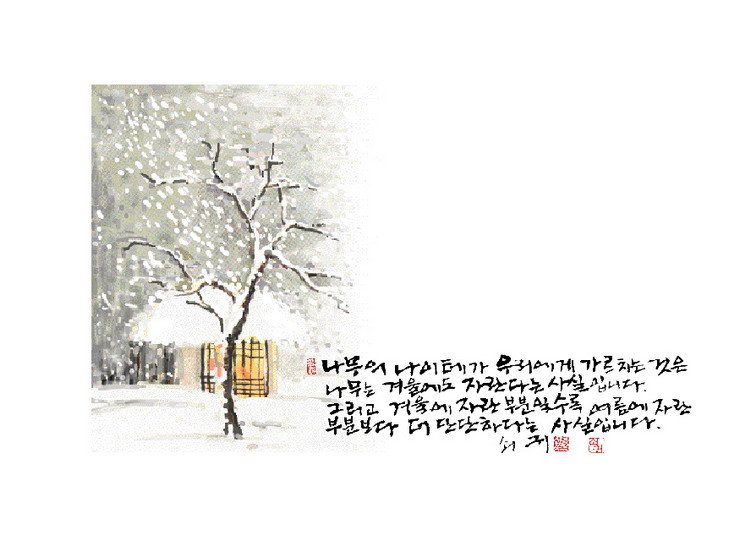 나무의 나이테가 우리에게 가르치는 것은
나무는 겨울에도 자란다는 사실입니다.
그리고 겨울에 자란 부분일수록 여름에 자란
부분보다 더 단단하다는 사실입니다.
쇠귀